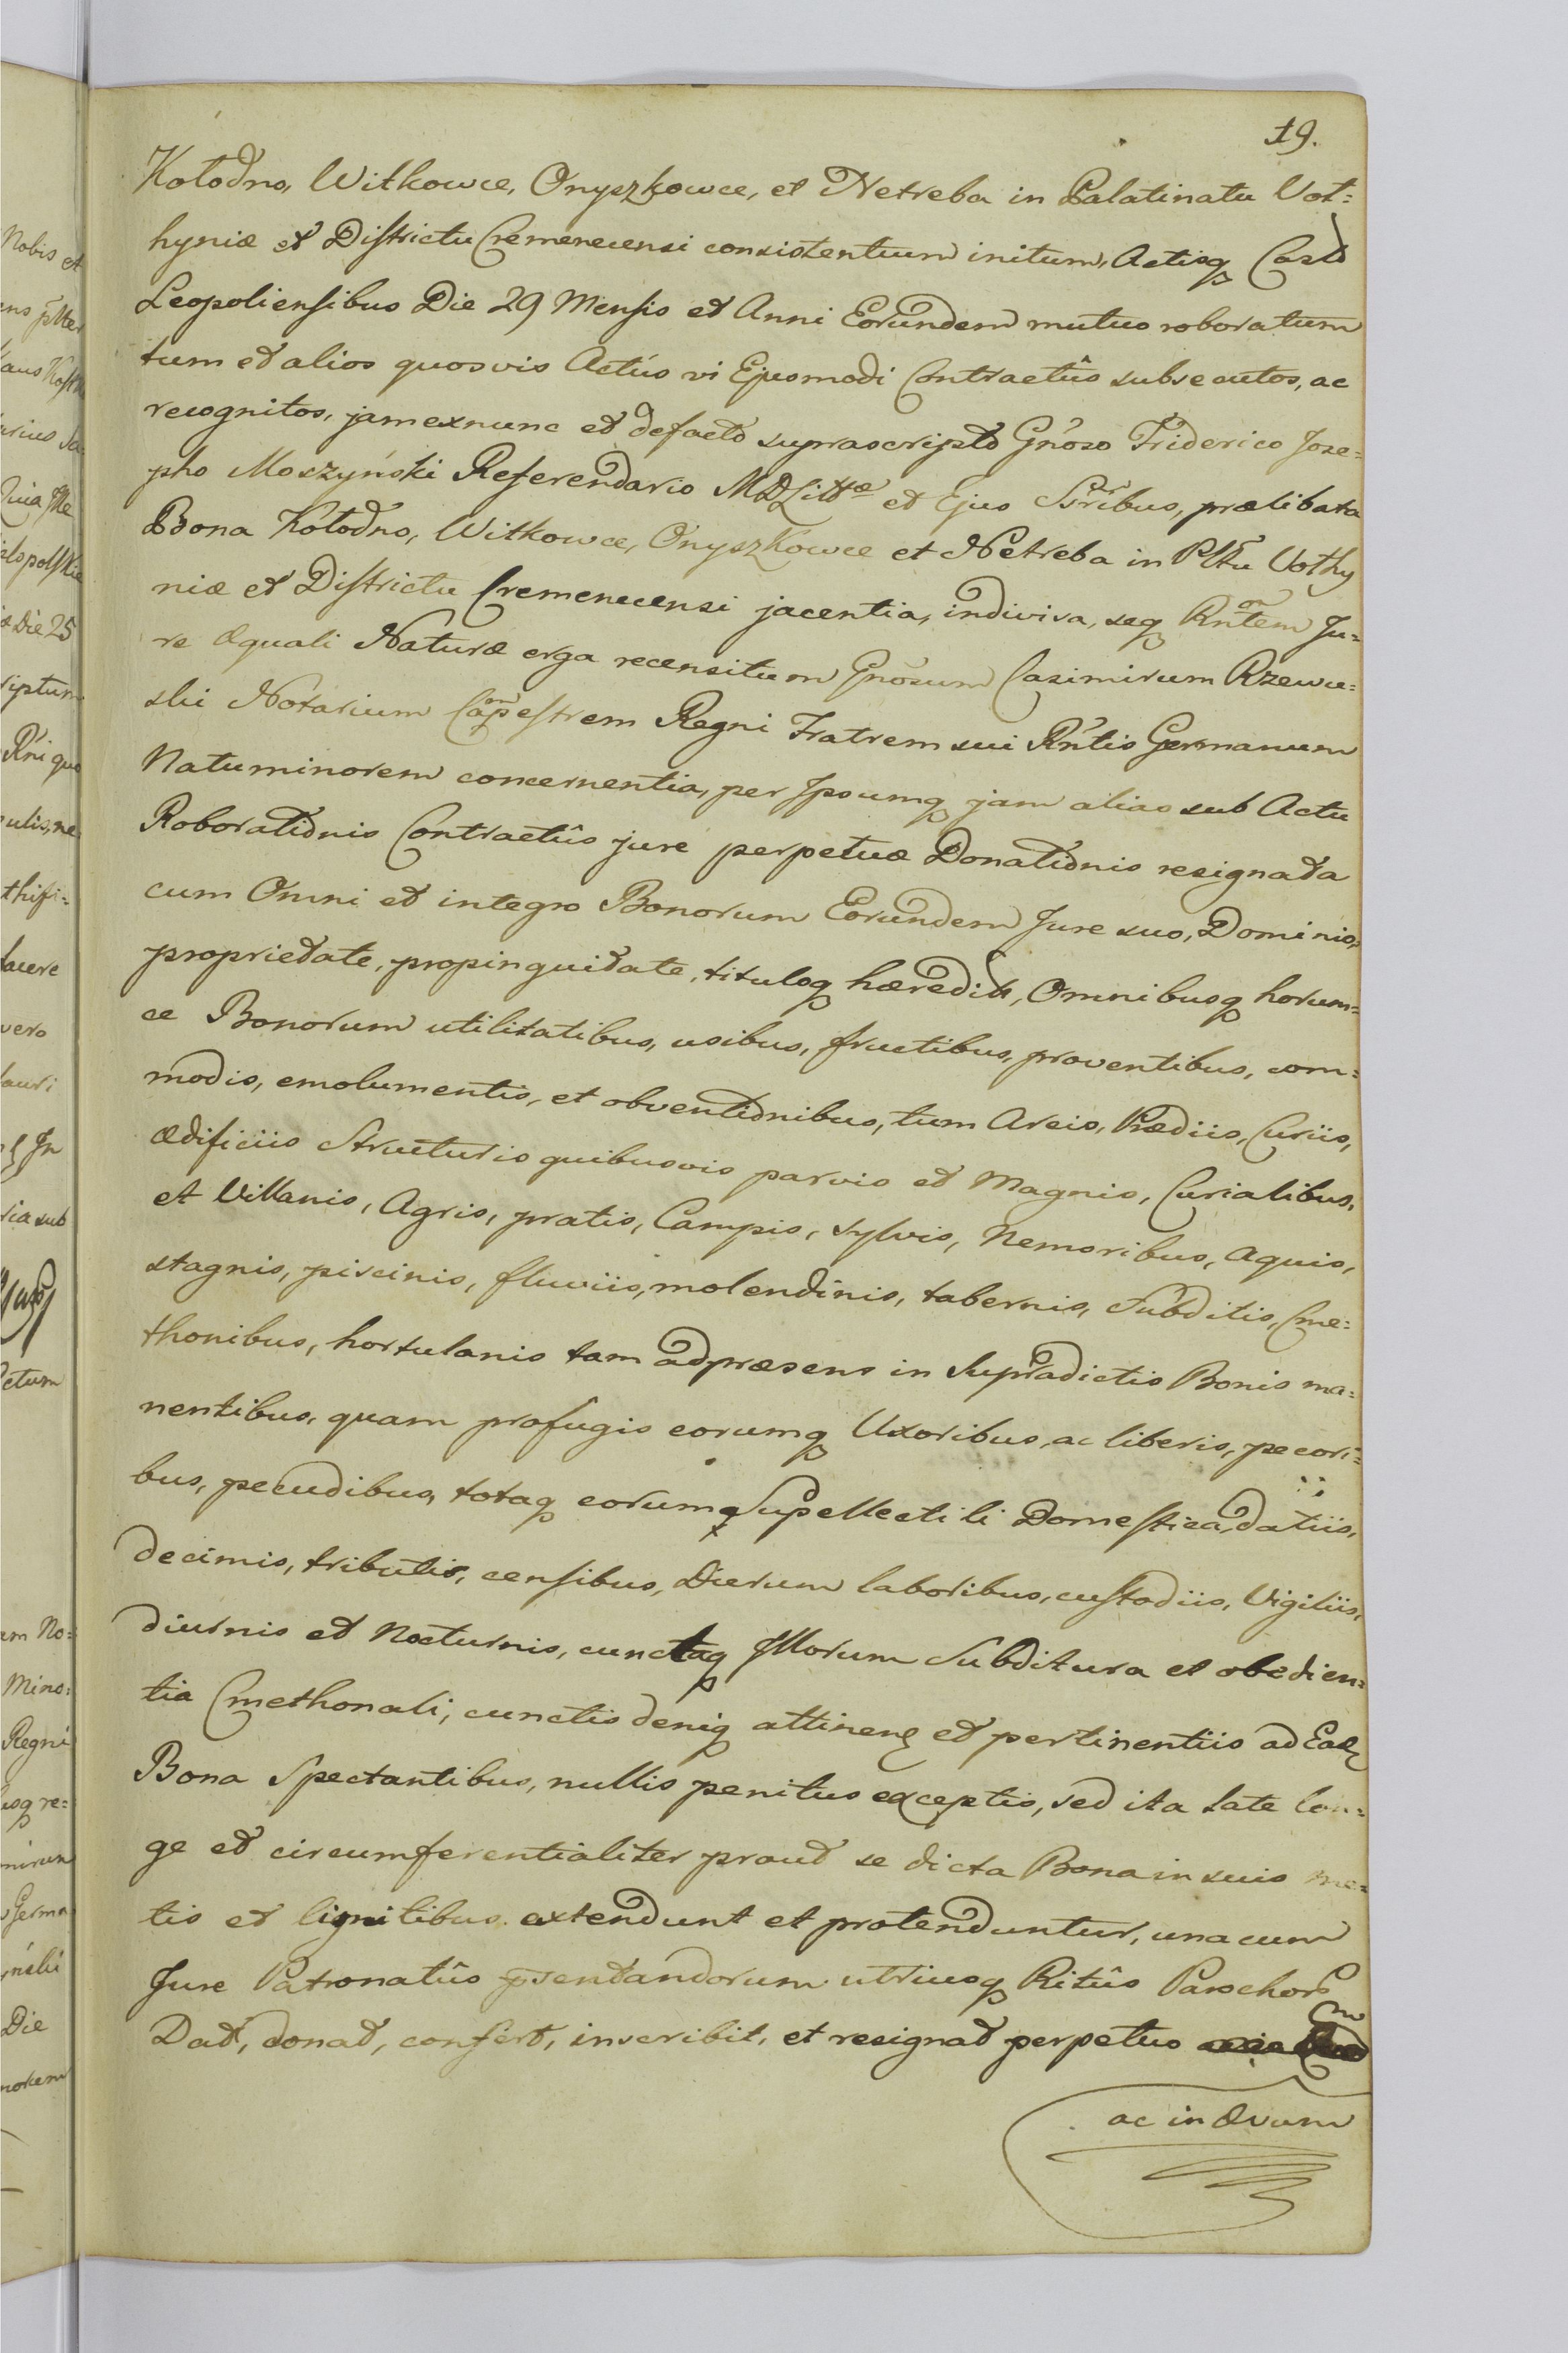 19.
Kołodno, Witkowce, Onyszkowce, et Netreba in Palatinatu Vol=
hyniæ et Districtu Cremenecensi consistentium initum, Actisq Castr
Leopoliensibus Die 29 Mensis et Anni Eorundem mutuo roboratum
tum et alios quosvis Actus vi Ejusmodi Contractûs subsecutos, ac
recognitos, jam exnunc et defacto suprascripto Gnoso Friderico Jose=
pho Moszyński Referendario MDLittæ et Ejus Ssribus, prælibata
Bona Kołodno, Witkowce, Onyszkowce et Netreba in Pltu Volhy
niæ et Districtu Cremenecensi jacentia, indivisa, seq Rntem Ju=
re æquali Naturæ erga recensitum Gnosum Casimirum Rzewu=
ski Notarium Campestrem Regni Fratrem sui Rntis Germanum
Natu minorem concernentia, per Ipsumq jam alias sub Actu
Roborationis Contractûs jure perpetuæ Donationis resignata
cum Omni et integro Bonorum Eorundem Jure suo, Dominio,
proprietate, propinquitate, tituloq hæredit, Omnibusq horum=
ce Bonorum utilitatibus, usibus, fructibus, proventibus, com=
modis, emolumentis, et obventionibus, tum Areis, Prædiis, Curiis,
ædificiis Structuris quibusvis parvis et Magnis, Curialibus,
et Villanis, Agris, pratis, Campis, sylvis, Nemoribus, Aquis,
stagnis, piscinis, fluviis, molendinis, tabernis, Subditis, Cme=
thonibus, hortulanis tam ad præsens in Supradictis Bonis ma=
nentibus, quam profugis eorumq Uxoribus, ac liberis, pecori=
bus, pecudibus, totaq eorumq Supellectili Domestica, datiis,
decimis, tributis, censibus, Dierum laboribus, custodiis, Vigiliis,
diurnis et Nocturnis, cunctaq Illorum Subditura et obedien=
tia Cmethonali; cunctis deniq attinen et pertinentiis ad Ead
Bona Spectantibus, nullis penitus exceptis, sed ita late lon=
ge et circumferentialiter prout se dicta Bona in suis me=
tis et limitibus extendunt et protenduntur, una cum
Jure Patronatûs psentandorum utriusq Ritûs Parochorum
Dat, donat, confert, inscribit, et resignat perpetuo
ac in ævum